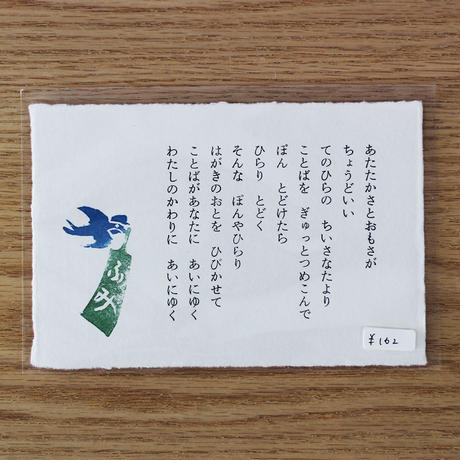 あたたかさとおもさが
ちょうどいい
てのひらの　ちいさなたより
ことばを　ぎゅっとつめこんで
ぽん　とどけたら
ひらり　とどく
そんな　ぽんやひらり
はがきのおとを　ひびかせて
ことばがあなたに　あいにゆく
わたしのかわりに　あいにゆく
ふみ
¥162